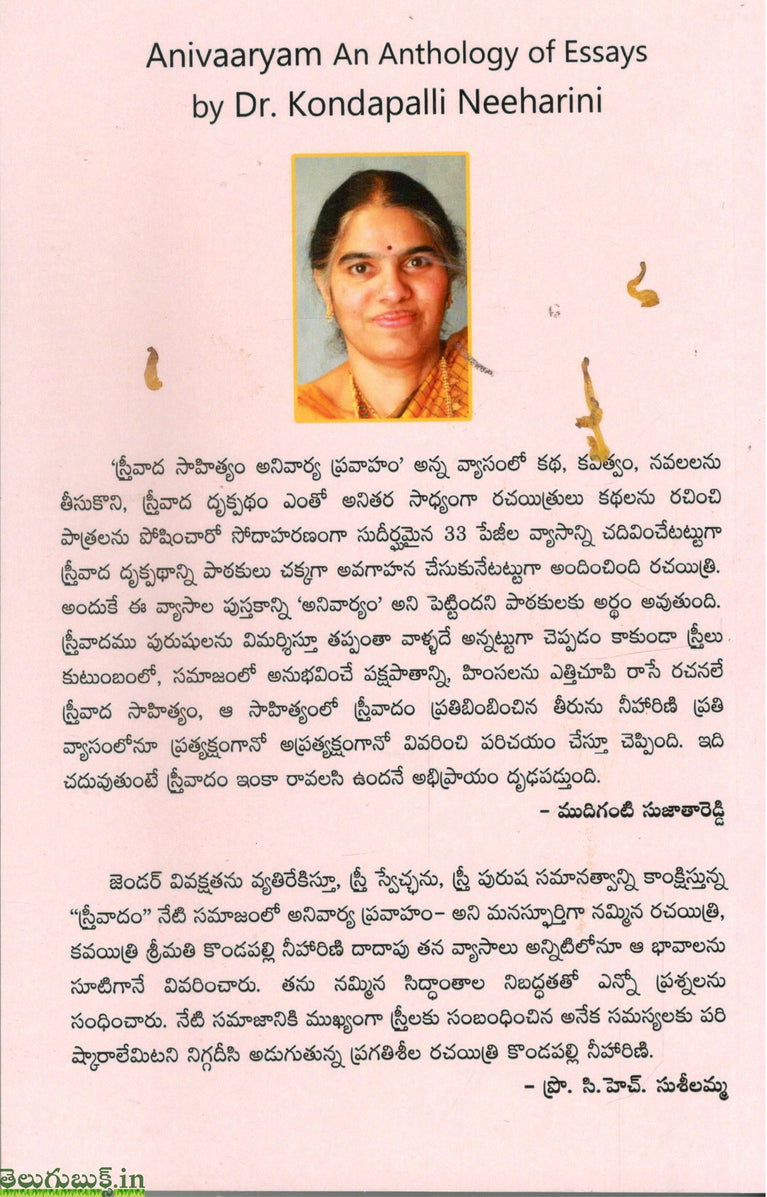 Anivaaryam An Anthology of Essays
by Dr. Kondapalli Neeharini
'స్త్రీవాద సాహిత్యం అనివార్య ప్రవాహం' అన్న వ్యాసంలో కథ, కవిత్వం, నవలలను
తీసుకొని, స్త్రీవాద దృక్పథం ఎంతో అనితర సాధ్యంగా రచయిత్రులు కథలను రచించి
పాత్రలను పోషించారో సోదాహరణంగా సుదీర్ఘమైన 33 పేజీల వ్యాసాన్ని చదివించేటట్టుగా
స్త్రీవాద దృక్పథాన్ని పాఠకులు చక్కగా అవగాహన చేసుకునేటట్టుగా అందించింది రచయిత్రి.
అందుకే ఈ వ్యాసాల పుస్తకాన్ని 'అనివార్యం' అని పెట్టిందని పాఠకులకు అర్థం అవుతుంది.
స్త్రీవాదము పురుషులను విమర్శిస్తూ తప్పంతా వాళ్ళదే అన్నట్టుగా చెప్పడం కాకుండా స్త్రీలు
కుటుంబంలో, సమాజంలో అనుభవించే పక్షపాతాన్ని, హింసలను ఎత్తిచూపి రాసే రచనలే
స్త్రీవాద సాహిత్యం, ఆ సాహిత్యంలో స్త్రీవాదం ప్రతిబింబించిన తీరును నీహారిణి ప్రతి
వ్యాసంలోనూ ప్రత్యక్షంగానో అప్రత్యక్షంగానో వివరించి పరిచయం చేస్తూ చెప్పింది. ఇది
చదువుతుంటే స్త్రీవాదం ఇంకా రావలసి ఉందనే అభిప్రాయం దృఢపడ్తుంది.
- ముదిగంటి సుజాతారెడ్డి
జెండర్ వివక్షతను వ్యతిరేకిస్తూ, స్త్రీ స్వేచ్ఛను, స్త్రీ పురుష సమానత్వాన్ని కాంక్షిస్తున్న
"స్త్రీవాదం" నేటి సమాజంలో అనివార్య ప్రవాహం- అని మనస్ఫూర్తిగా నమ్మిన రచయిత్రి,
కవయిత్రి శ్రీమతి కొండపల్లి నీహారిణి దాదాపు తన వ్యాసాలు అన్నిటిలోనూ ఆ భావాలను
సూటిగానే వివరించారు. తను నమ్మిన సిద్ధాంతాల నిబద్ధతతో ఎన్నో ప్రశ్నలను
సంధించారు. నేటి సమాజానికి ముఖ్యంగా స్త్రీలకు సంబంధించిన అనేక సమస్యలకు పరి
ష్కారాలేమిటని నిగ్గదీసి అడుగుతున్న ప్రగతిశీల రచయిత్రి కొండపల్లి నీహారిణి.
- ప్రొ. సి.హెచ్. సుశీలమ్మ
తెలుగుబుక్స్.in